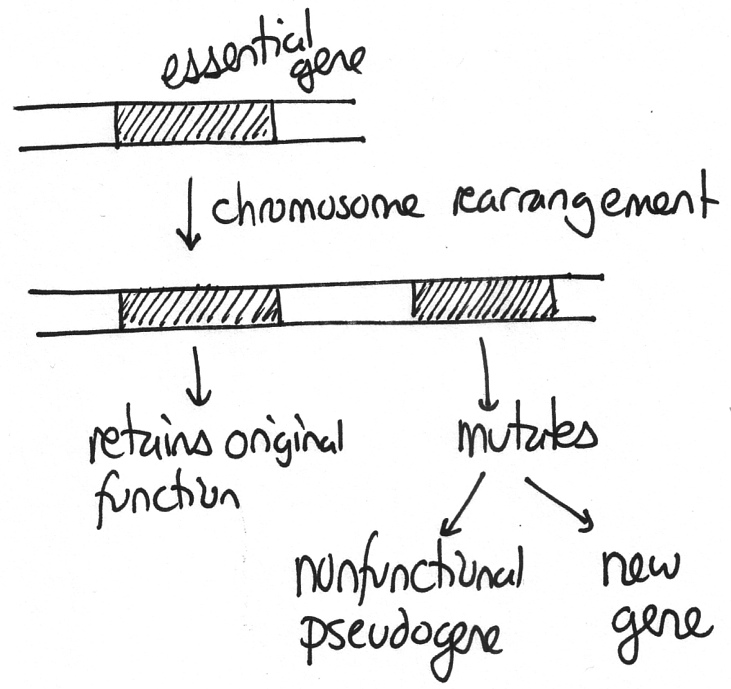 essential
gene
chromosome rearrangement
retains original
function
mutates
nonfunctional
pseudogene
new
gene